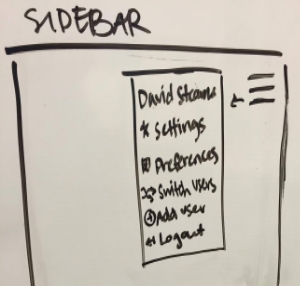 SIDEBAR
David Stearns
Settings
Preferences
Switch Users
Add user
Logout